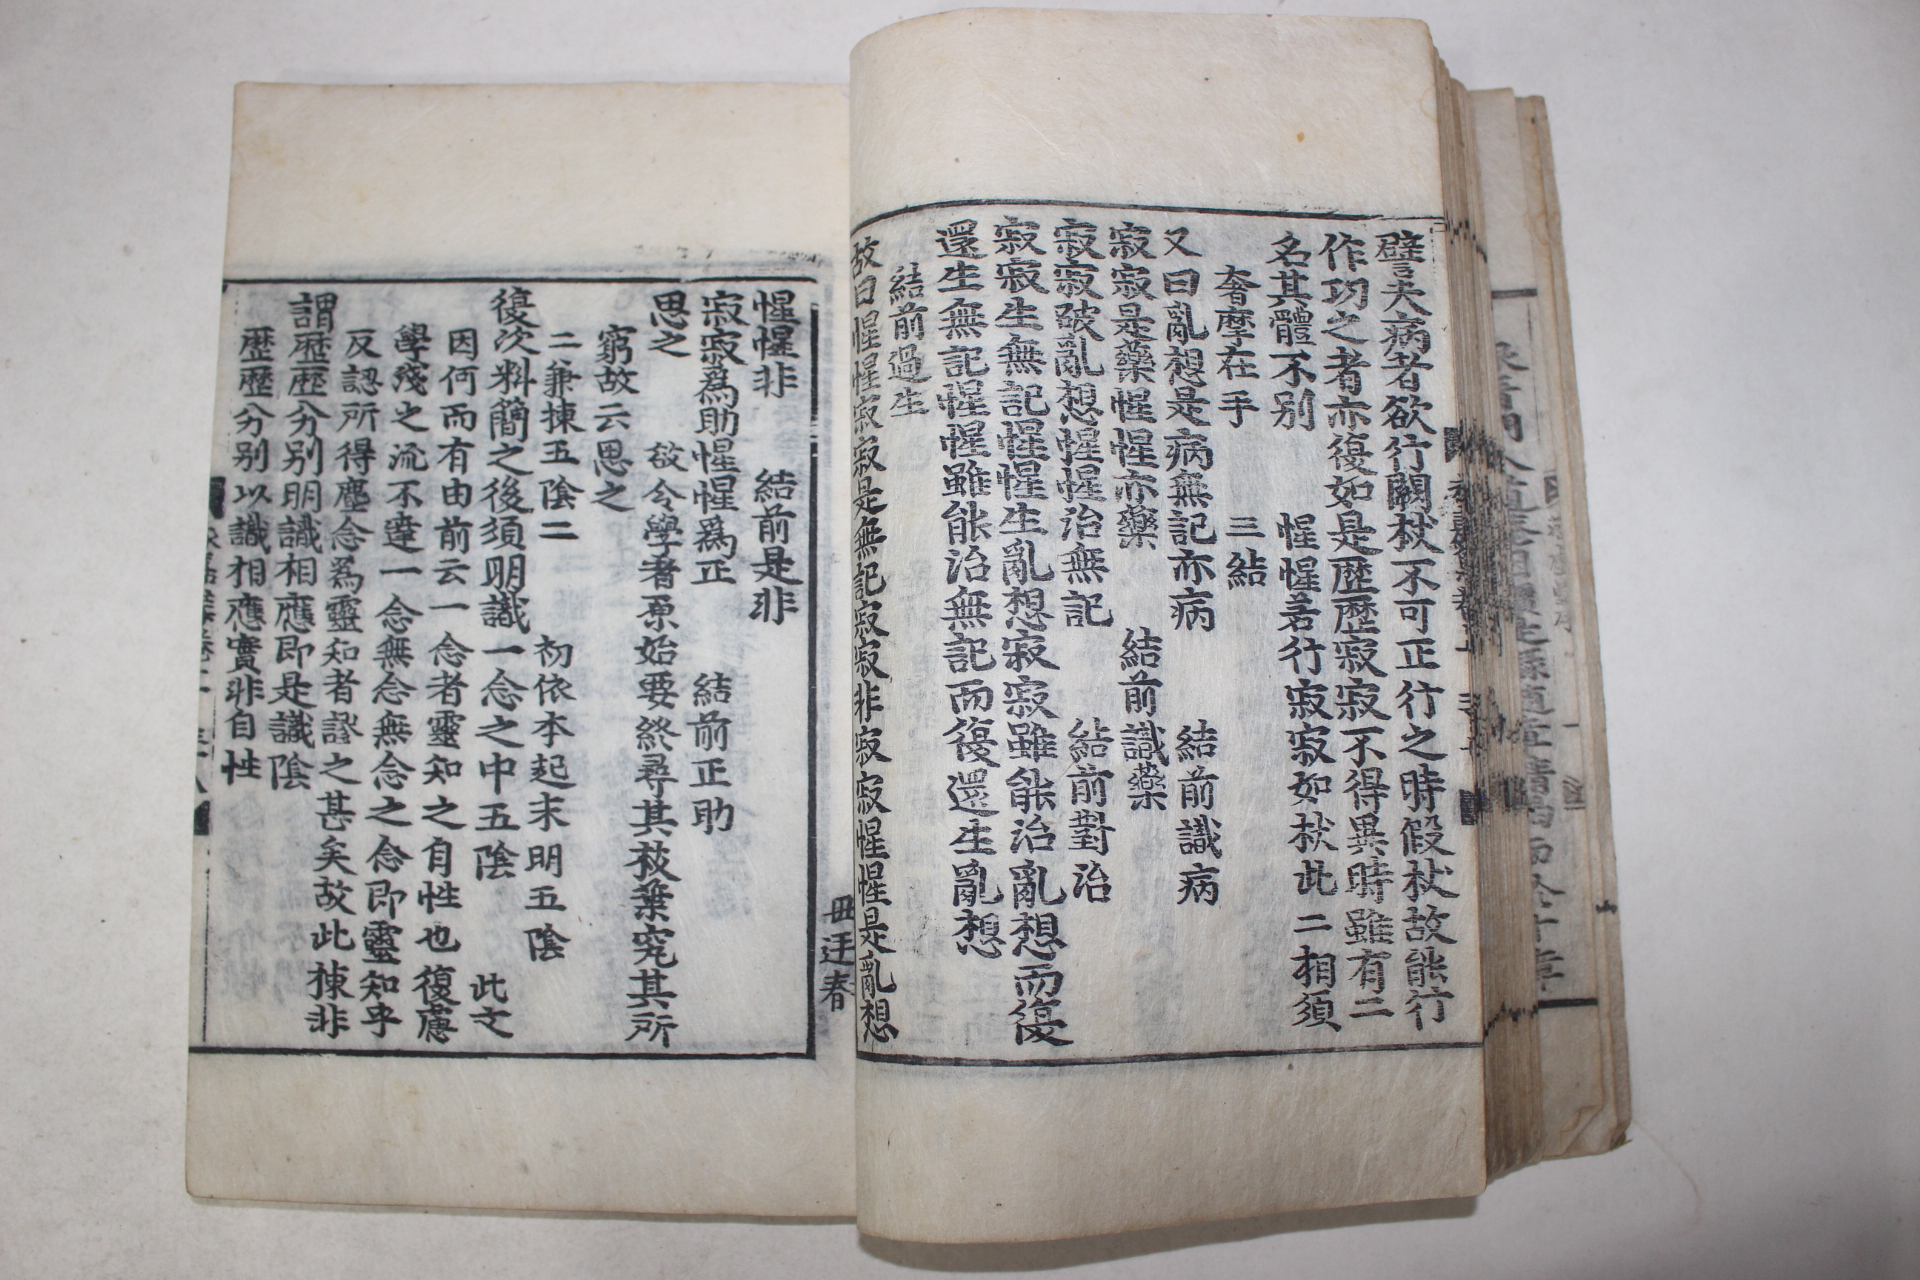 譬夫病者欲行關杖不可正行之時假杖故能行
作功之者亦復如是歷歷寂寂不得異時雖有二
名其體不別 惺惺若行寂寂如杖此二相須
奢摩在手 三結
又曰亂想是病無記亦病 結前識病
寂寂是藥惺惺亦藥 結前識藥
寂寂破亂想惺惺治無記 結前對治
寂寂生無記惺惺生亂想寂寂雖能治亂想而復
還生無記惺惺雖能治無記而復還生亂想
結前過生
故曰惺惺寂寂是無記寂寂非寂寂惺惺是亂想
惺惺非 結前是非
寂寂爲助惺惺爲正 結前正助
思之 故令學者原始要終尋其枝葉究其所
窮故云思之
二兼揀五陰二 初依本起末明五陰
復次料簡之後須明識一念之中五陰 此文
因何而有由前云一念者靈知之自性也復慮
學淺之流不達一念無念無念之念即靈知乎
反認所得塵念爲靈知者謬之甚矣故此揀非
謂歷歷分別明識相應即是識陰
歷歷分別以識相應實非自性